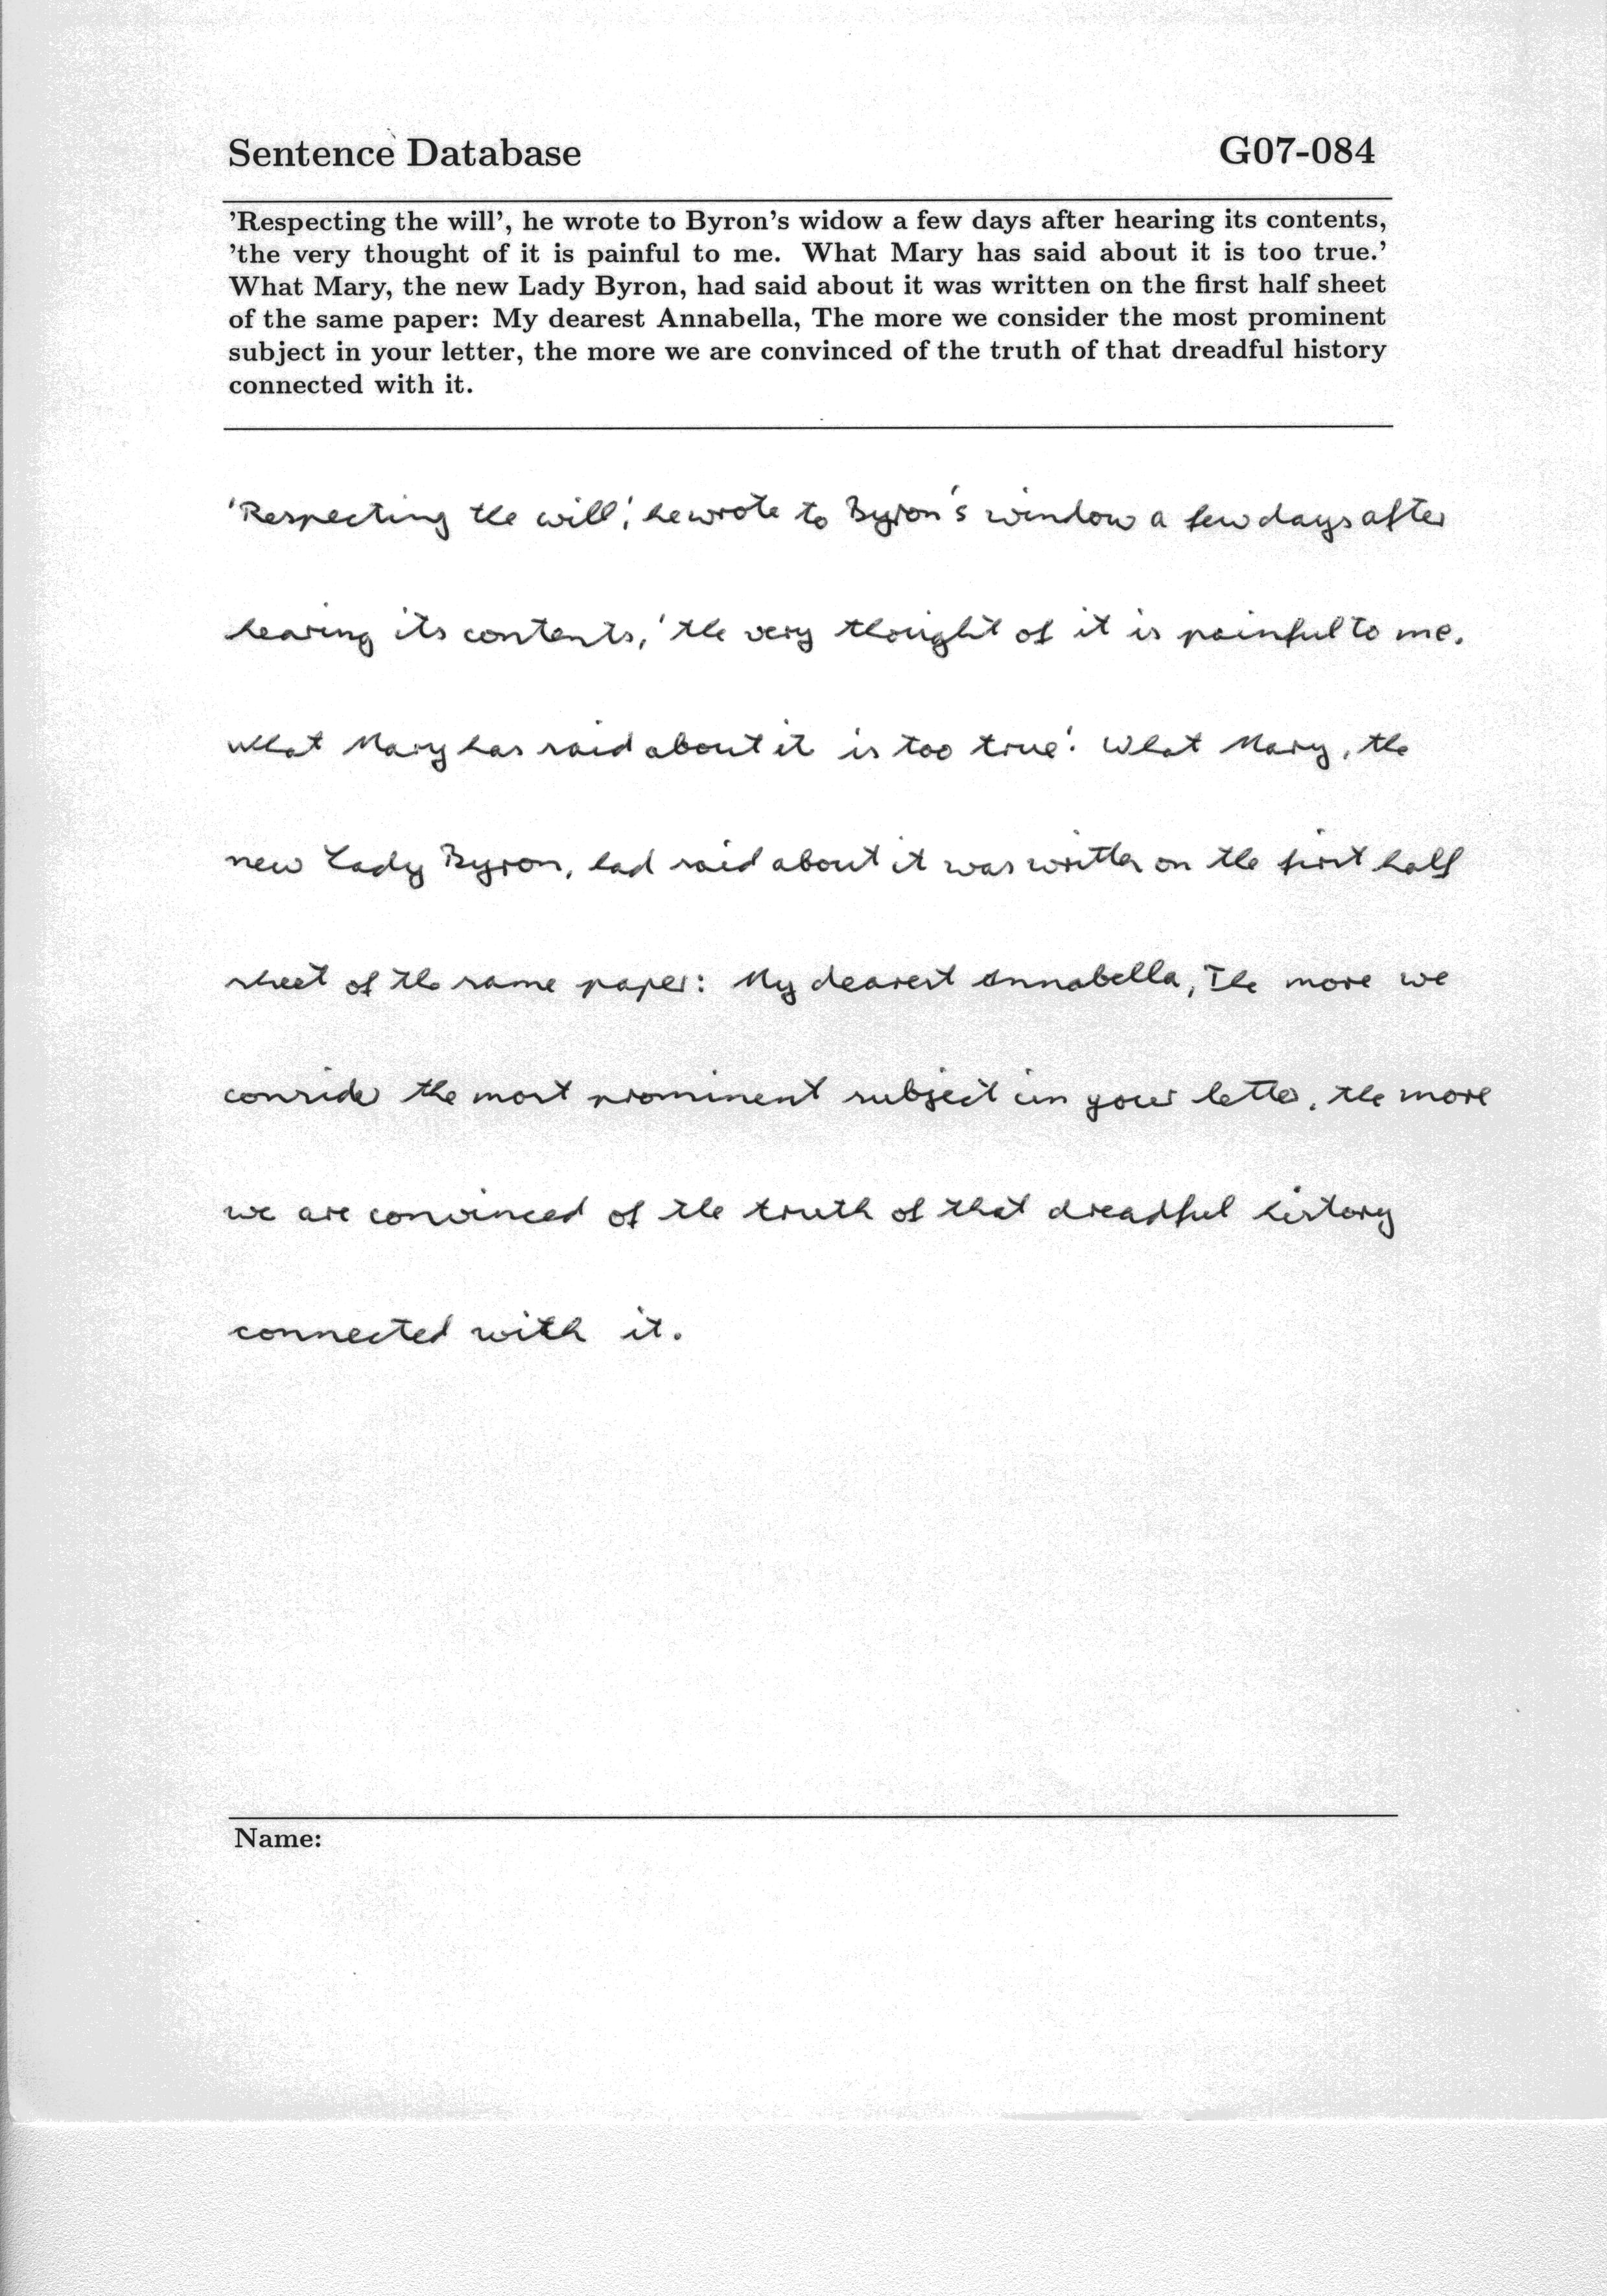 Sentence Database G07-084
'Respecting the will', he wrote to Byron's widow a few days after hearing its contents,
'the very thought of it is painful to me. What Mary has said about it is too true.'
What Mary, the new Lady Byron, had said about it was written on the first half sheet
of the same paper: My dearest Annabella, The more we consider the most prominent
subject in your letter, the more we are convinced of the truth of that dreadful history
connected with it.
'Respecting the will', he wrote to Byron's window a few days after
hearing its contents, 'the very thought of it is painful to me.
What Mary has said about it is too true.' What Mary, the
new Lady Byron, had said about it was written on the first half
sheet of the same paper: My dearest Annabella, The more we
consider the most prominent subject in your letter, the more
we are convinced of the truth of that dreadful history
connected with it.
Name: